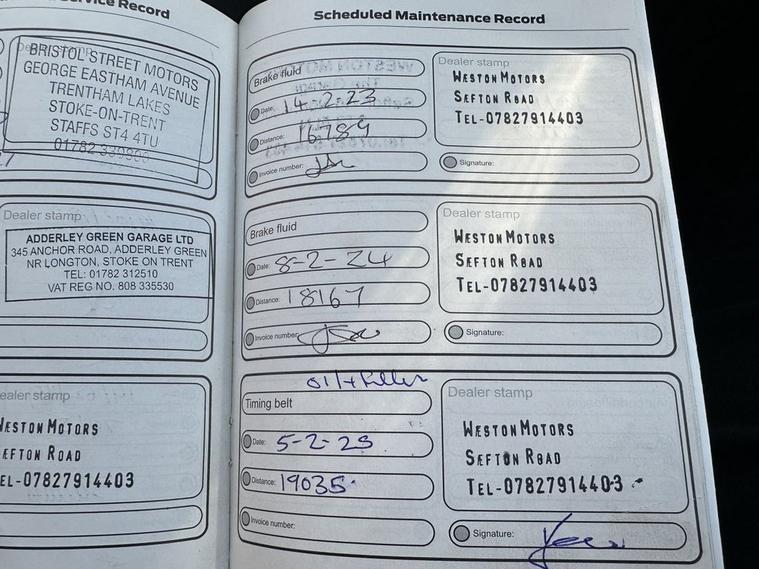 Service Record
Dealer stamp
BRISTOL STREET MOTORS
GEORGE EASTHAM AVENUE
TRENTHAM LAKES
STOKE-ON-TRENT
STAFFS ST4 4TU
01782
Dealer stamp
ADDERLEY GREEN GARAGE LTD
345 ANCHOR ROAD, ADDERLEY GREEN
NR LONGTON, STOKE ON TRENT
TEL: 01782 312510
VAT REG NO. 808 335530
ealer stamp
WESTON MOTORS
SEFTON ROAD
EL-07827914403
Scheduled Maintenance Record
Brake fluid
Date: 14-2-23
Distance: 16789
Invoice number:
Dealer stamp
WESTON MOTORS
SEFTON ROAD
TEL-07827914403
Signature:
Brake fluid
Date: 8-2-24
Distance: 18167
Invoice number:
Dealer stamp
WESTON MOTORS
SEFTON ROAD
TEL-07827914403
Signature:
oil + filter
Timing belt
Date: 5-2-25
Distance: 19035
Invoice number:
Dealer stamp
WESTON MOTORS
SEFTON ROAD
TEL-07827914403
Signature: